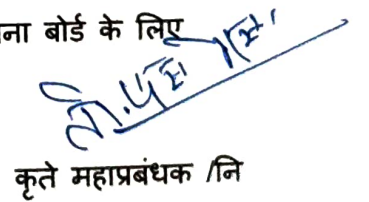 ना बोर्ड के लिए
कृते महाप्रबंधक /नि